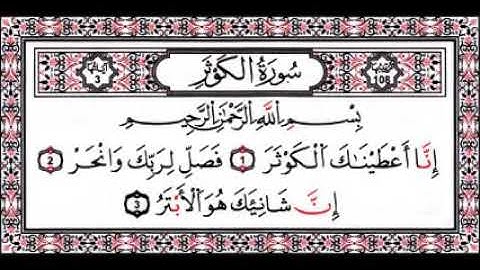 سُورَةُ الْكَوْثَرِ
3
108
بِسْمِ اللَّهِ الرَّحْمَٰنِ الرَّحِيمِ
إِنَّا أَعْطَيْنَاكَ الْكَوْثَرَ 1 فَصَلِّ لِرَبِّكَ وَانْحَرْ 2
إِنَّ شَانِئَكَ هُوَ الْأَبْتَرُ 3